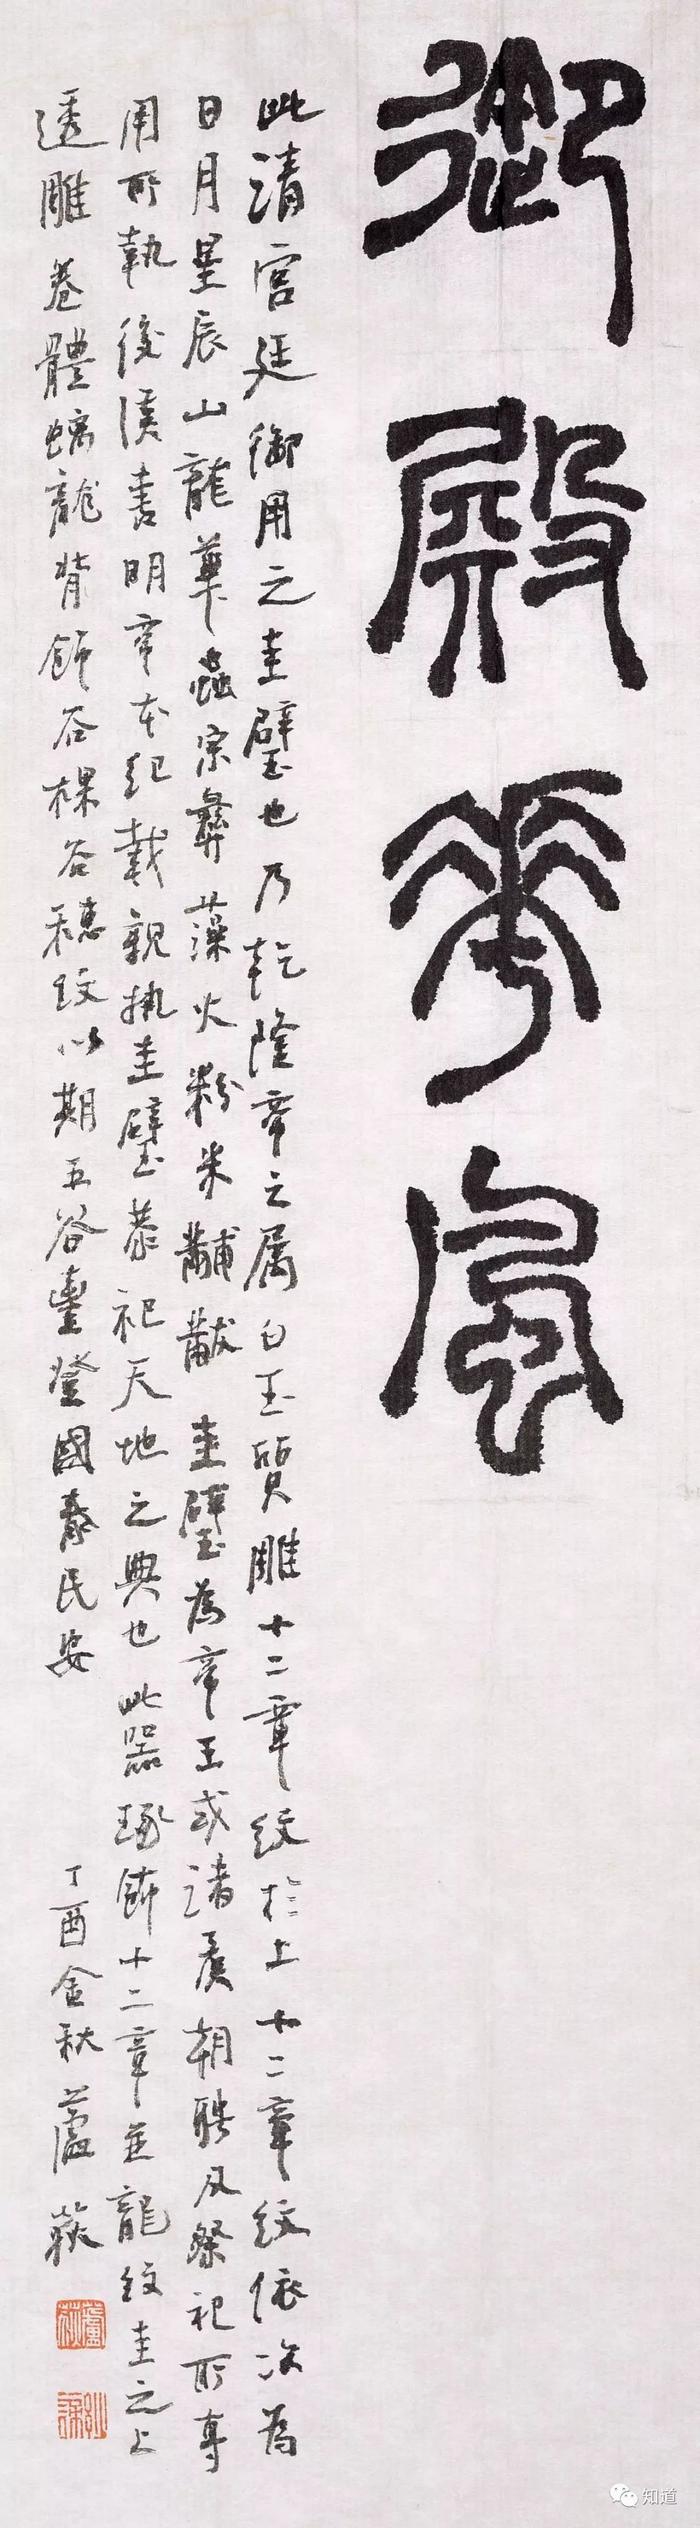 御殿華風
此清宮廷御用之圭璧也乃乾隆帝之属白玉質雕十二章紋於上十二章紋依次為
日月星辰山龍華蟲宗彝藻火粉米黼黻圭璧為帝王或諸侯朝聘及祭祀所專
用所執後漢書明帝本紀載親執圭璧恭祀天地之典也此器琢飾十二章並龍紋圭之上
透雕卷體螭龍背飾谷棵谷穗紋以期五谷豐登國泰民安
丁酉金秋蘆荻
蘆荻
知道